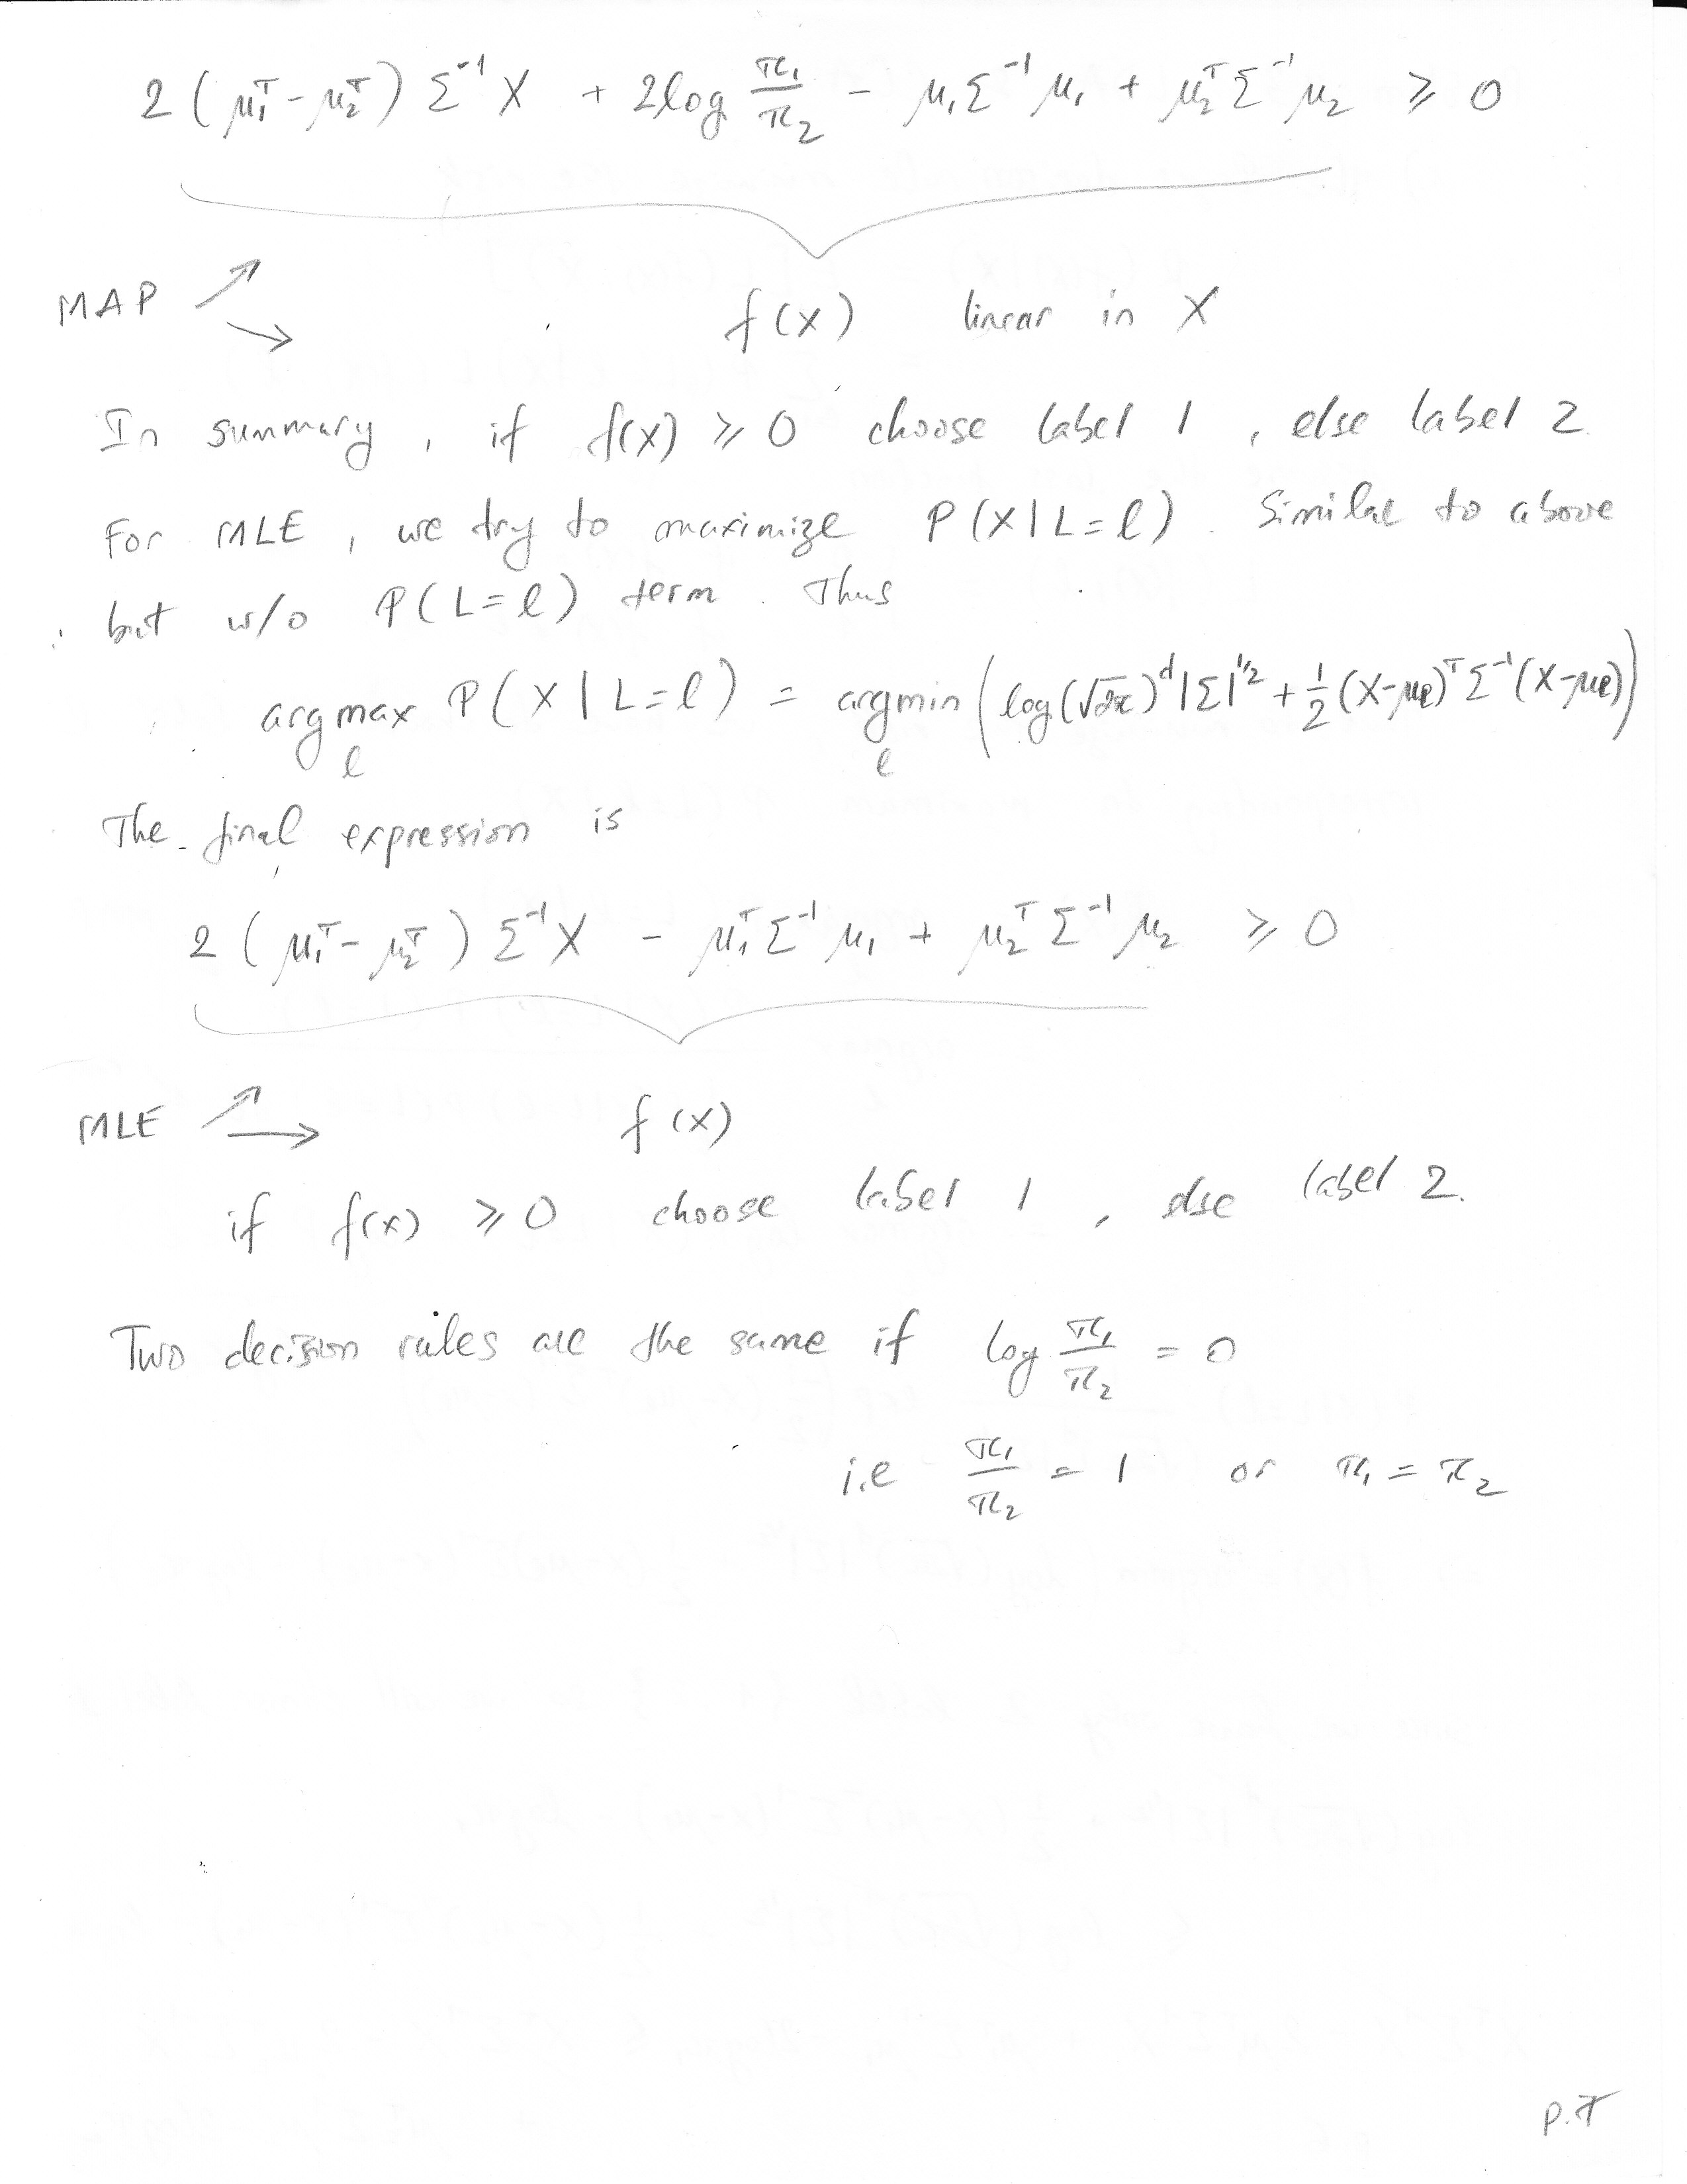 2 (μ₁ᵀ - μ₂ᵀ) Σ⁻¹ X + 2 log π₁/π₂ - μ₁ Σ⁻¹ μ₁ + μ₂ᵀ Σ⁻¹ μ₂ ⩾ 0
MAP ↗ ↘ f(x) linear in X
In summary, if f(x) ⩾ 0 choose label 1, else label 2.
For MLE, we try to maximize P(X | L=ℓ). Similar to above
but w/o P(L=ℓ) term. Thus
argmax_ℓ P(X | L=ℓ) = argmin_ℓ (log(√2π)ᵈ |Σ|^½ + 1/2 (X-μ_ℓ)ᵀ Σ⁻¹ (X-μ_ℓ))
The final expression is
2 (μ₁ᵀ - μ₂ᵀ) Σ⁻¹ X - μ₁ᵀ Σ⁻¹ μ₁ + μ₂ᵀ Σ⁻¹ μ₂ ⩾ 0
MLE ↗ → f(x)
if f(x) ⩾ 0 choose label 1, else label 2.
Two decision rules are the same if log π₁/π₂ = 0
i.e π₁/π₂ = 1 or π₁ = π₂
p.7